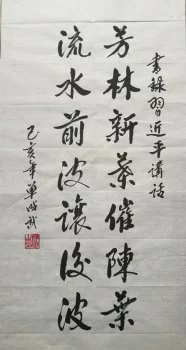 書録習近平講話
芳林新葉催陳葉
流水前波讓後波
己亥年單成武